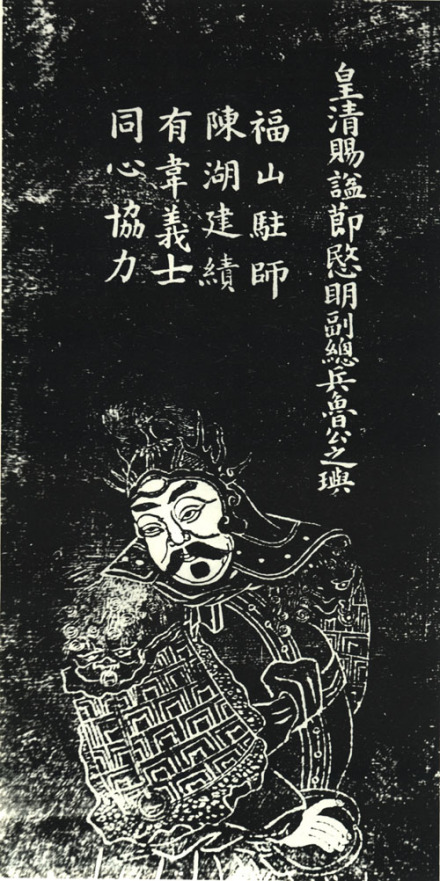 皇清賜謚節愍明副總兵魯公之璵
福山駐師
陳湖建績
有韋義士
同心協力